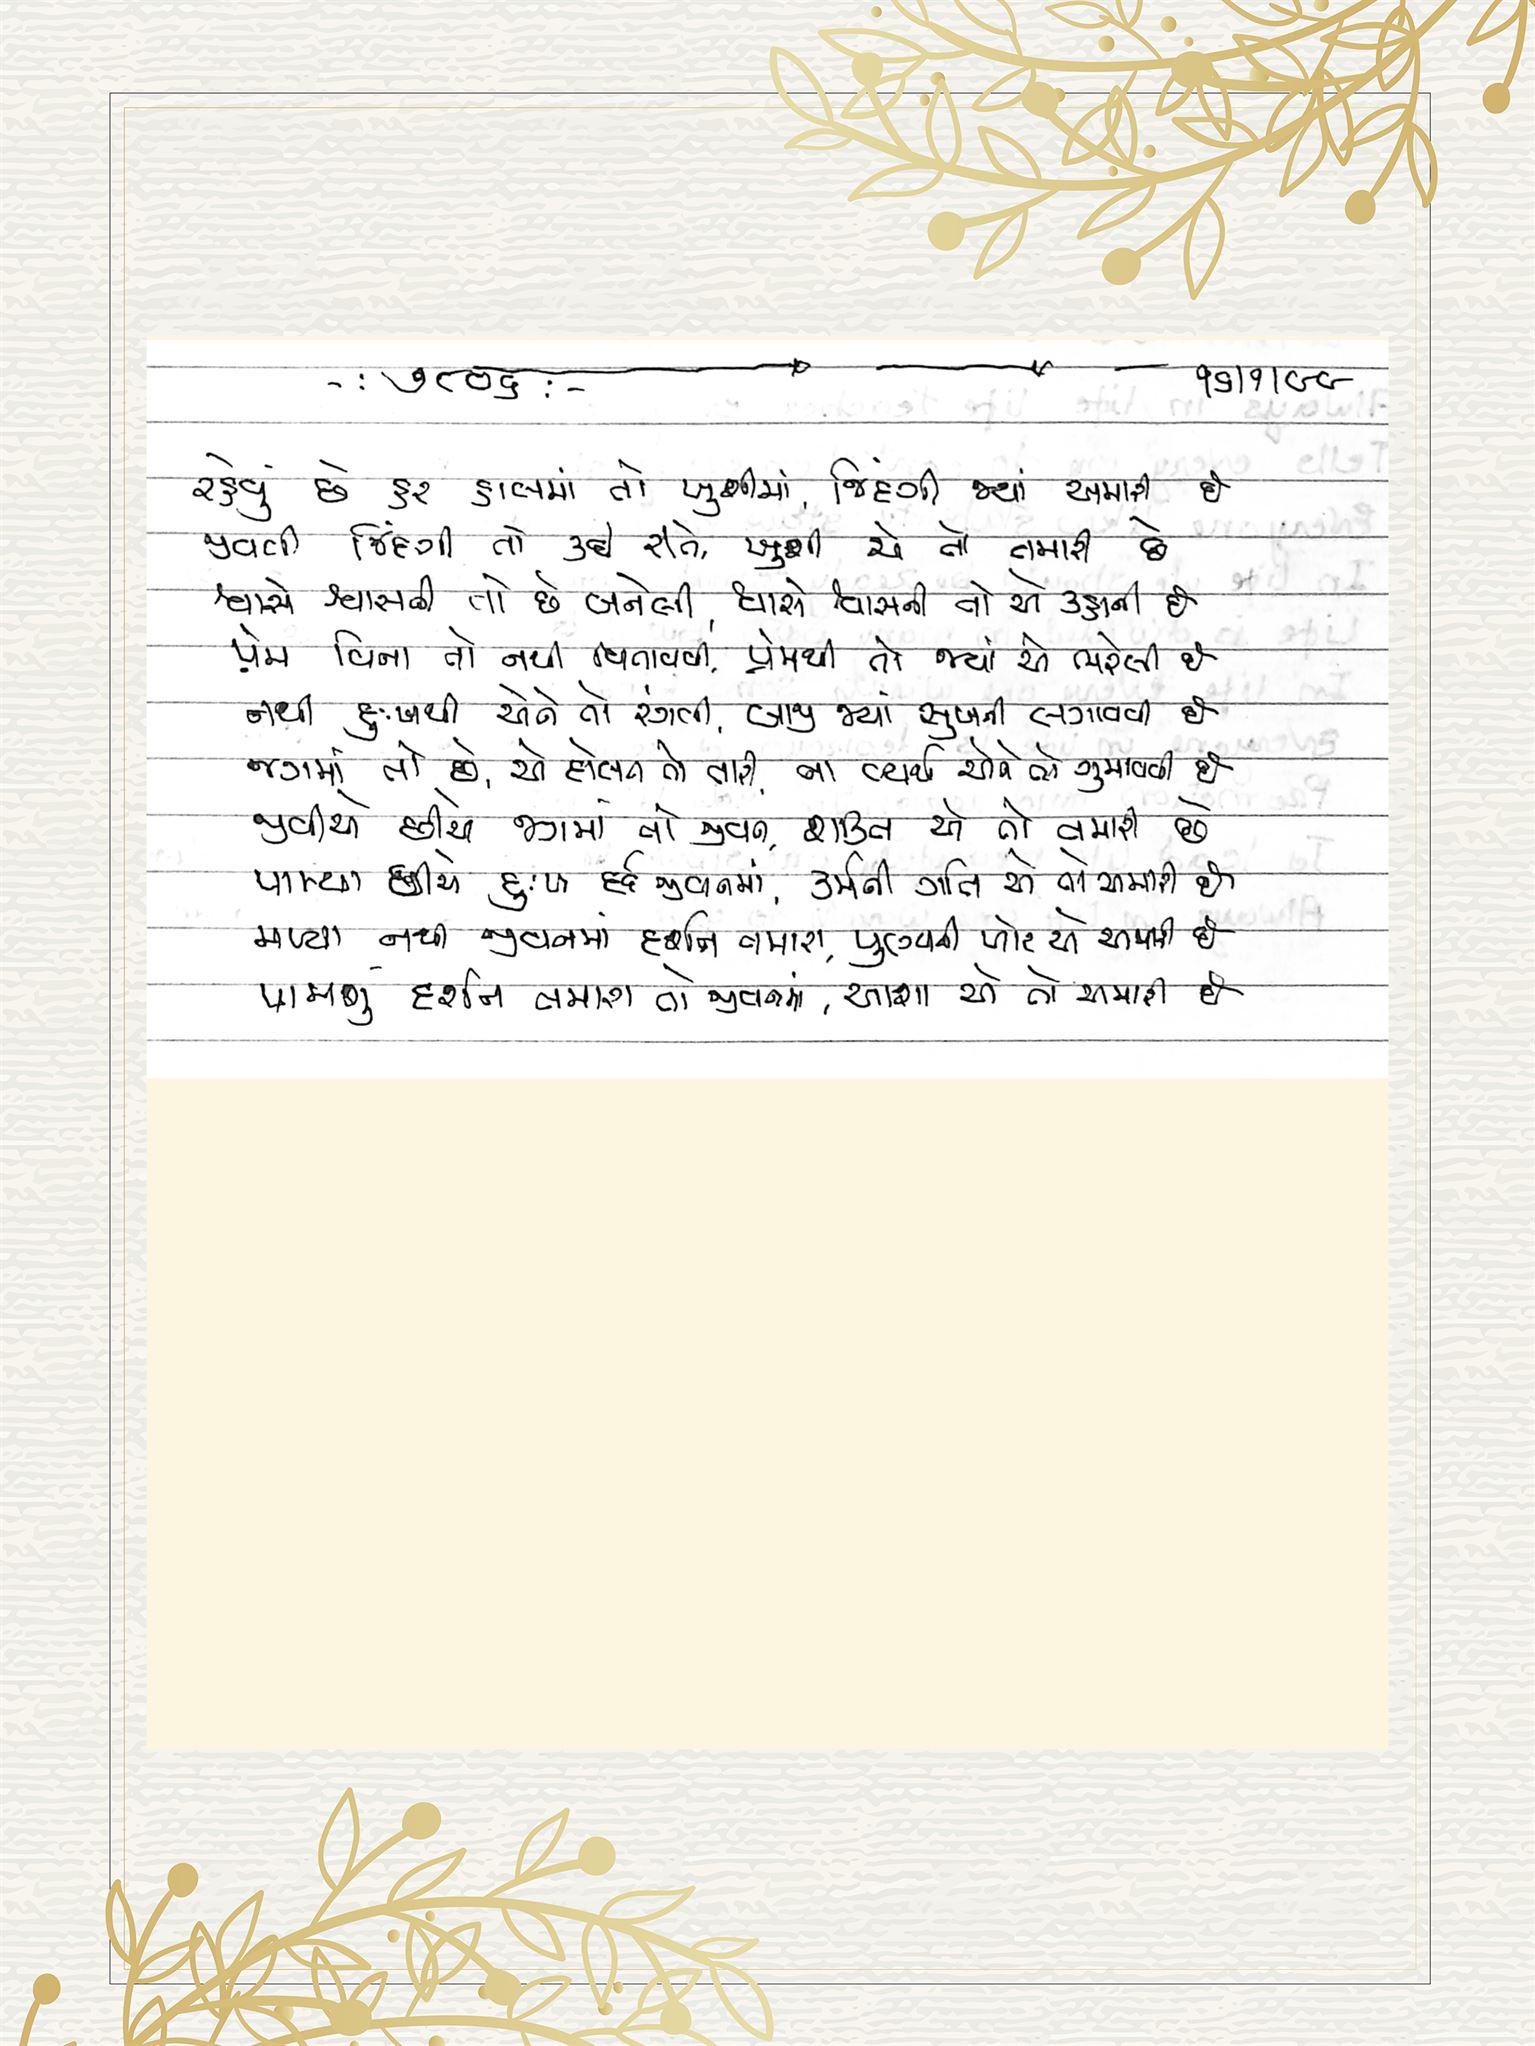 -: ૭૮૭૬ :-
૧૬/૧/૯૯
રહેવું છે હર હાલમાં તો ખુશીમાં, જિંદગી જ્યાં અમારી છે
જીવવી જિંદગી તો કઈ રીતે, ખુશી એ તો તમારી છે
શ્વાસે શ્વાસથી તો છે બનેલી, શ્વાસે શ્વાસની તો એ કહાની છે
પ્રેમ વિના તો નથી બિતાવવી, પ્રેમથી તો જ્યાં એ ભરેલી છે
નથી દુઃખથી એને તો રંગવી, બાજી જ્યાં સુખની લગાવવી છે
જગમાં તો છે, એ દોલત તો તારી, ના વ્યર્થ એને તો ગુમાવવી છે
જીવીએ છીએ જગમાં તો જીવન, શક્તિ એ તો તમારી છે
પામ્યા છીએ દુઃખ દર્દ જીવનમાં, કર્મની ગતિ એ તો અમારી છે
મળ્યા નથી જીવનમાં દર્શન તમારા, પુણ્યની ખોટ એ અમારી છે
પામશું દર્શન તમારા તો જીવનમાં, આશા એ તો અમારી છે